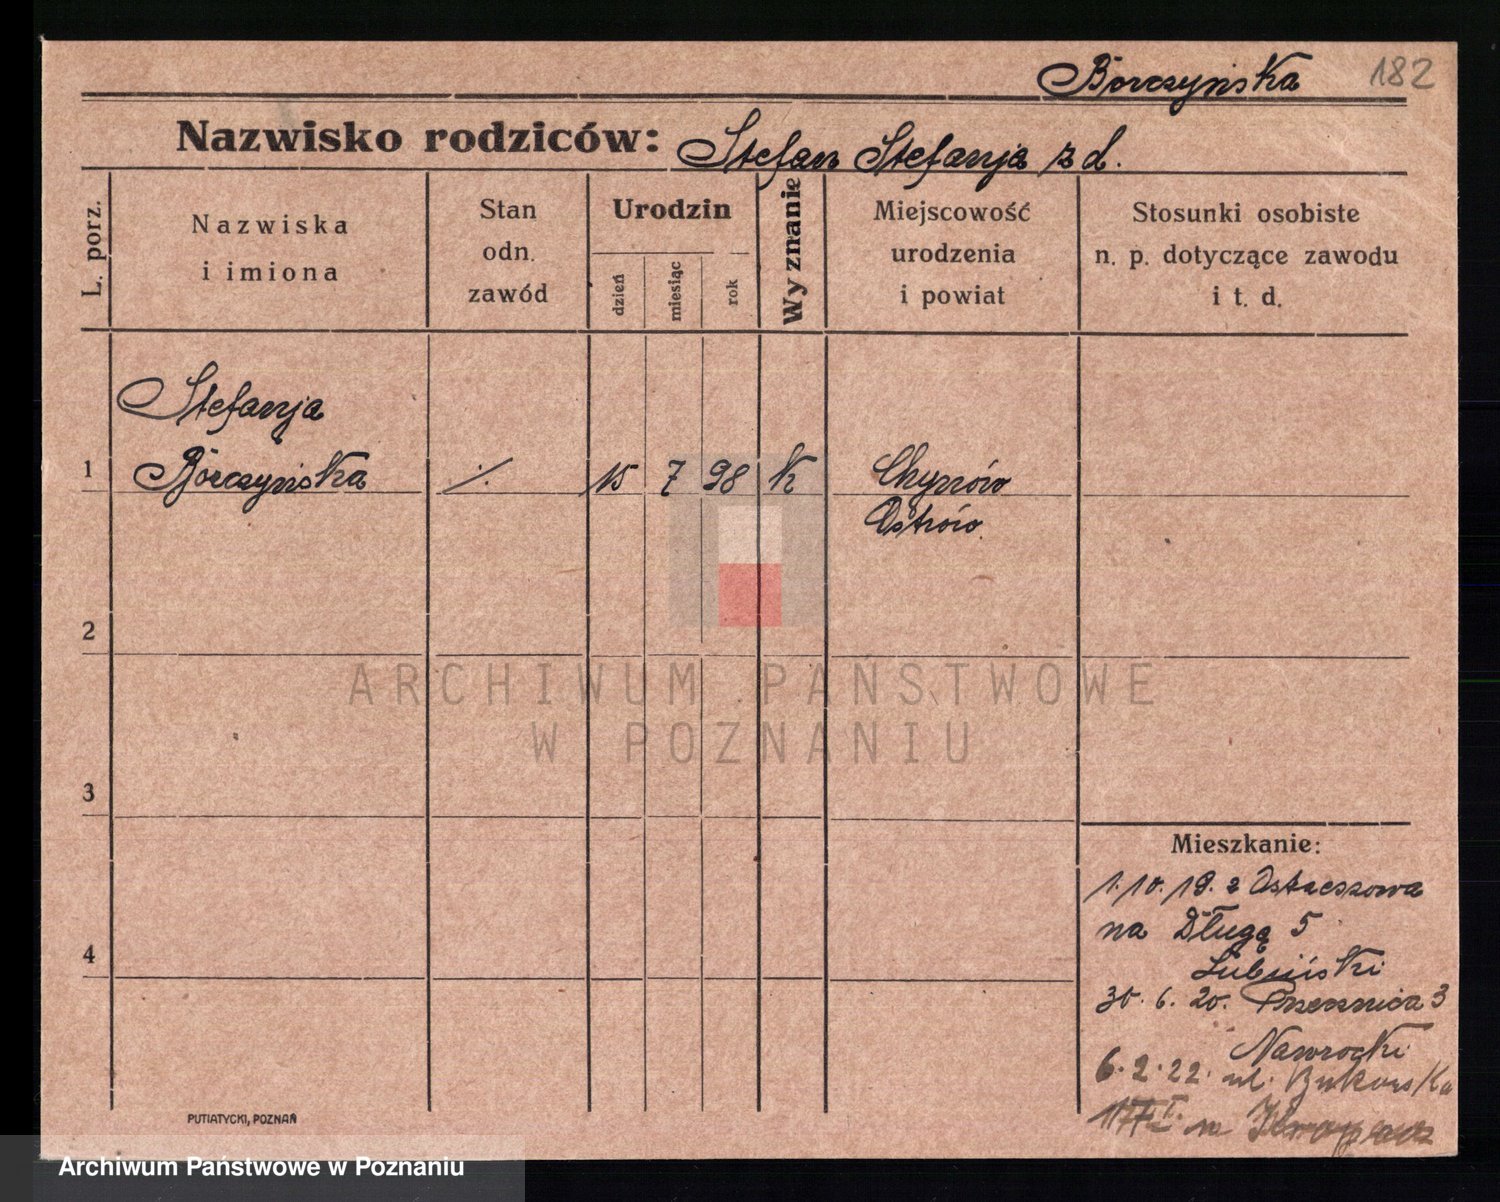 Borczyńska 182
Nazwisko rodziców: Stefan Stefanja z d.
L. porz.
Nazwiska
i imiona
Stan
odn.
zawód
Urodzin
dzień
miesiąc
rok
Wyznanie
Miejscowość
urodzenia
i powiat
Stosunki osobiste
n. p. dotyczące zawodu
i t. d.
Stefanja
1 Borczyńska ./. 15 7 98 k Chynów
Ostrów
2
ARCHIWUM PAŃSTWOWE
W POZNANIU
3
Mieszkanie:
1.10.19. z Ostrzeszowa
na Długą 5
4
Lubiński
30.6.20. Przecznica 3
Nawrocki
6.2.22. ul. Bukowska
PUTIATYCKI, POZNAŃ
Archiwum Państwowe w Poznaniu